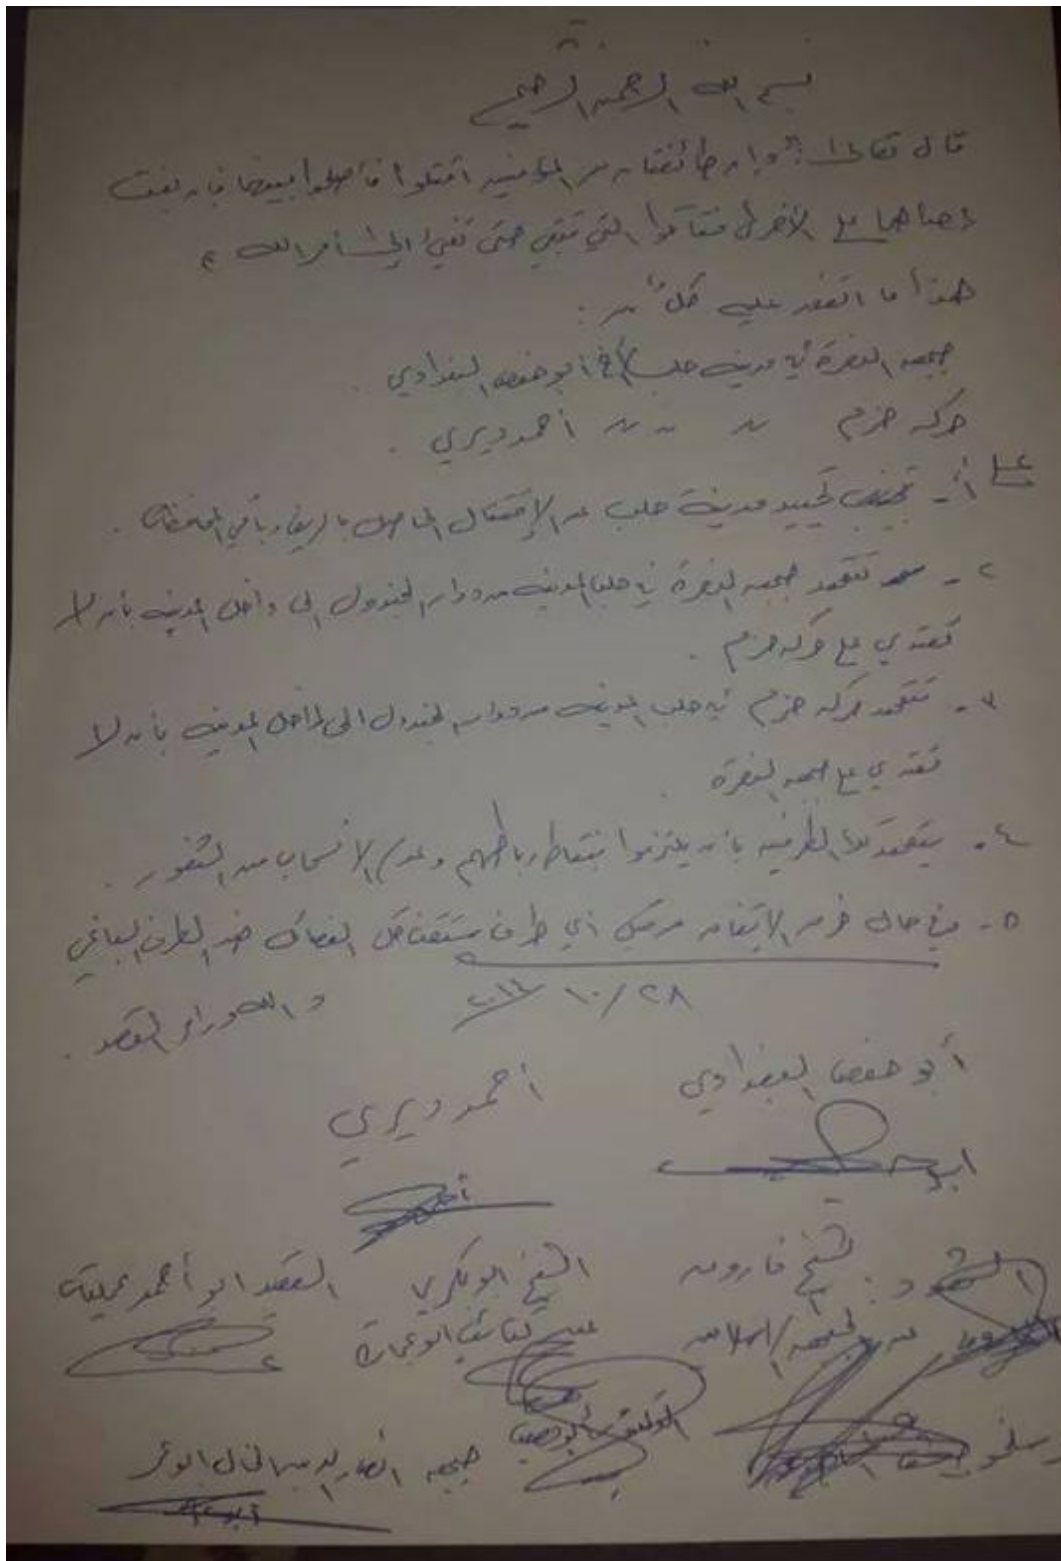 بسم الله الرحمن الرحيم
قال تعالى: "وإن طائفتان من المؤمنين اقتتلوا فأصلحوا بينهما فإن بغت
إحداهما على الأخرى فقاتلوا التي تبغي حتى تفيء إلى أمر الله"
هذا ما اتفق عليه كلٌ من:
جبهة النصرة في مدينة حلب الأخ أبو حفص البغدادي.
حركة حزم " " " أحمد ديري.
على
أ- تحييد مدينة حلب عن الإقتتال الحاصل بالريف وباقي المحافظات.
٢- تتعهد جبهة النصرة في حلب المدينة من دوار الجندول الى داخل المدينة بأن لا
تعتدي على حركة حزم.
٣- تتعهد حركة حزم في حلب المدينة من دوار الجندول الى داخل المدينة بأن لا
تعتدي على جبهة النصرة
٤- يتعهد كلا الطرفين بأن يلتزموا بنقاط رباطهم وعدم الانسحاب من الثغور.
٥- في حال خرق الإتفاق من قبل أي طرف ستقف كل الفصائل ضد الطرف الباغي
٢٨/١٠/٢٠١٤ والله وراء القصد.
أبو حفص البغدادي أحمد ديري
الشهود: الشيخ فاروق الشيخ ابو بكري العقيد ابو أحمد
من الجبهة الإسلامية عن كتائب ابو عمارة
جبهة أنصار الدين